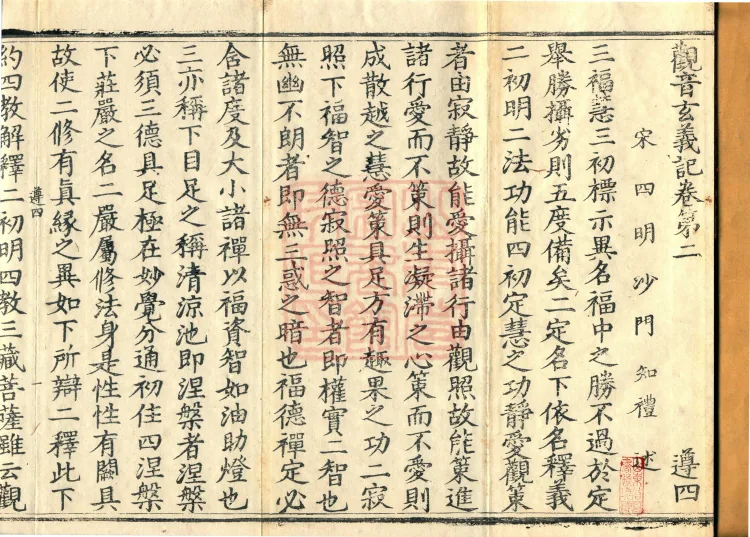 觀音玄義記卷第二
遵四
宋四明沙門知禮
述
三福慧三初標示異名福中之勝不過於定
舉勝攝劣則五度備矣二定名下依名釋義
二初明二法功能四初定慧之功靜愛觀策
者由寂靜故能愛攝諸行由觀照故能策進
諸行愛而不策則生凝滯之心策而不愛則
成散越之慧愛策具足方有趣果之功二寂
照下福智之德寂照之智者即權實二智也
無幽不朗者即無三惑之暗也福德禪定必
含諸度及大小諸禪以福資智如油助燈也
三亦稱下目足之稱清涼池即涅槃者涅槃
必須三德具足極在妙覺分通初住四涅槃
下莊嚴之名二嚴屬修法身是性性有闕具
故使二修有真緣之異如下所辯二釋此下
遵四
一
約四教解釋二初明四教三藏菩薩雖云觀